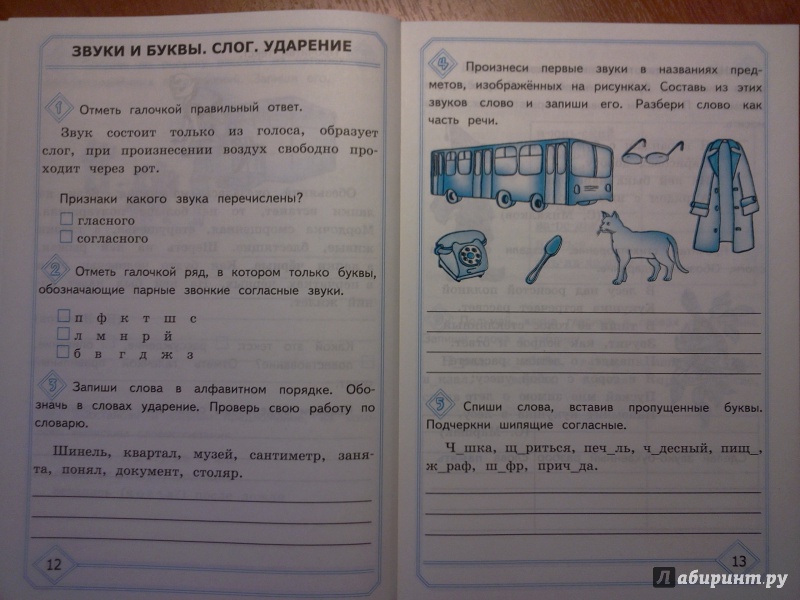 ЗВУКИ И БУКВЫ. СЛОГ. УДАРЕНИЕ
1 Отметь галочкой правильный ответ.
Звук состоит только из голоса, образует
слог, при произнесении воздух свободно про-
ходит через рот.
Признаки какого звука перечислены?
гласного
согласного
2 Отметь галочкой ряд, в котором только буквы,
обозначающие парные звонкие согласные звуки.
п ф к т ш с
л м н р й
б в г д ж з
3 Запиши слова в алфавитном порядке. Обо-
значь в словах ударение. Проверь свою работу по
словарю.
Шинель, квартал, музей, сантиметр, заня-
та, понял, документ, столяр.
12
4 Произнеси первые звуки в названиях пред-
метов, изображённых на рисунках. Составь из этих
звуков слово и запиши его. Разбери слово как
часть речи.
5 Спиши слова, вставив пропущенные буквы.
Подчеркни шипящие согласные.
Ч_шка, щ_риться, печ_ль, ч_десный, пищ_,
ж_раф, ш_фр, прич_да.
13
Лабиринт.ру